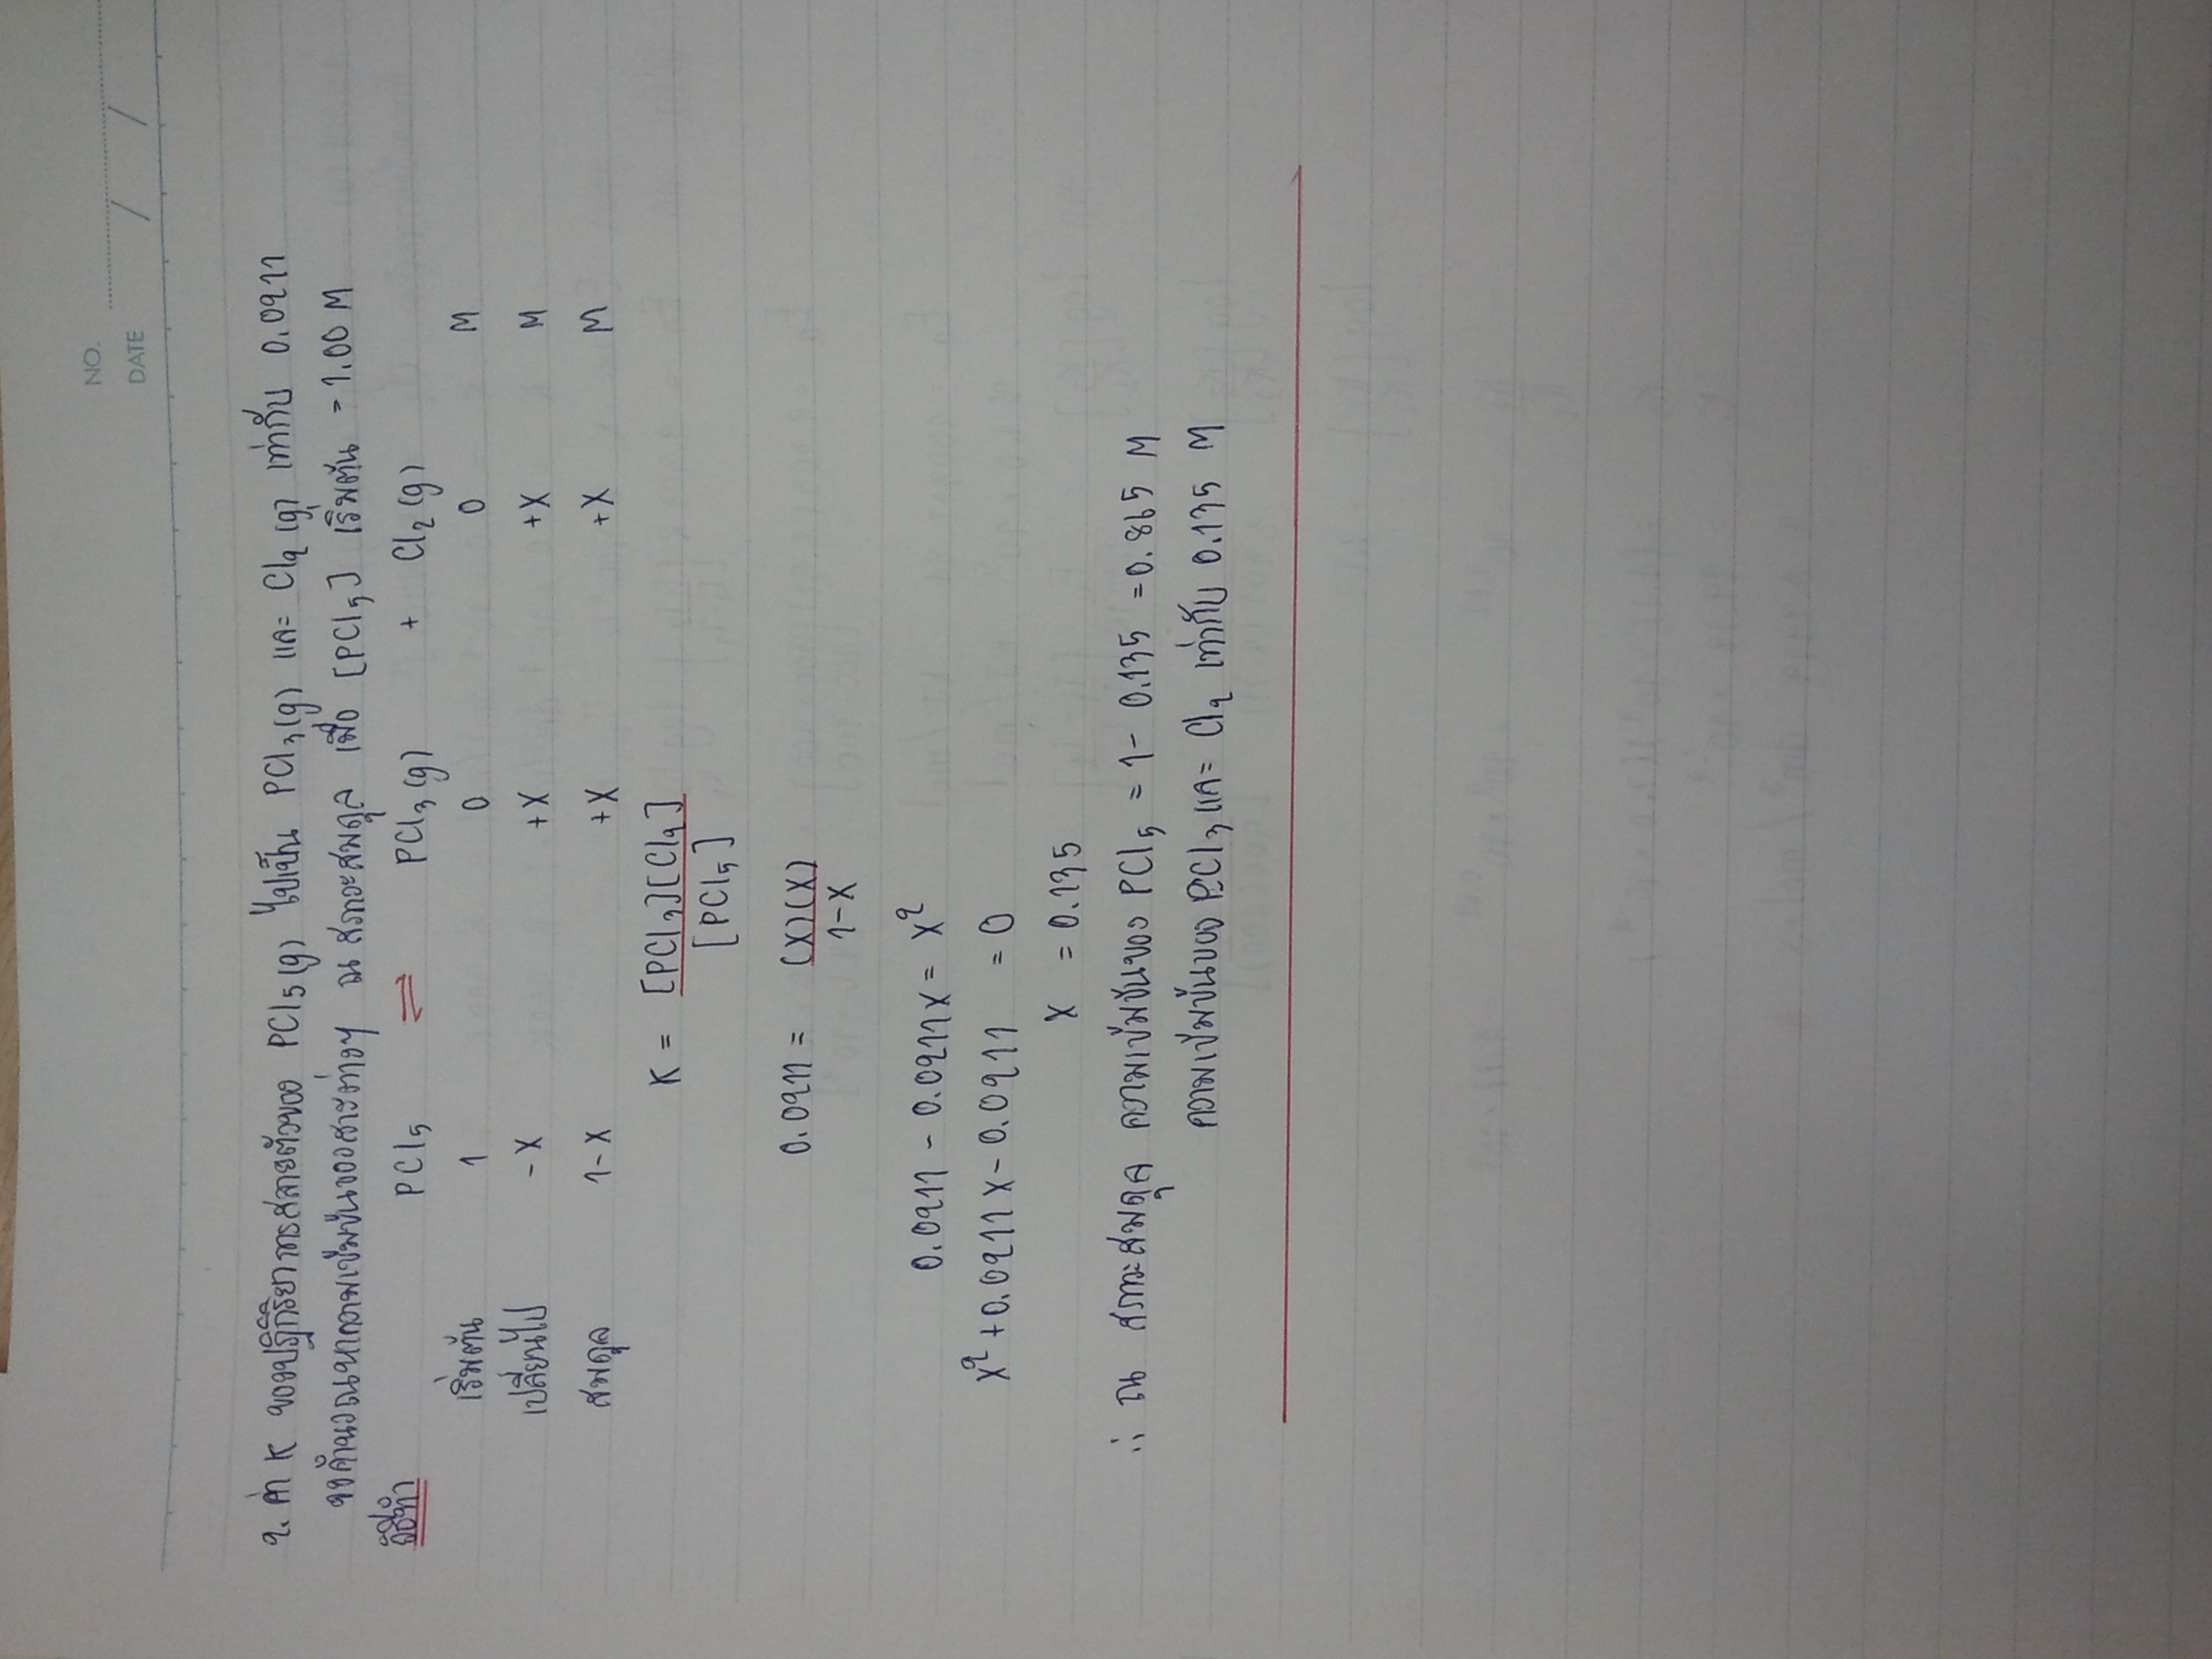 NO.
DATE / /
2. ค่า K ของปฏิกิริยาการสลายตัวของ PCl5(g) ไปเป็น PCl3(g) และ Cl2(g) เท่ากับ 0.0211
จงคำนวณหาความเข้มข้นของสารต่างๆ ณ สภาวะสมดุล เมื่อ [PCl5] เริ่มต้น = 1.00 M
วิธีทำ PCl5 ⇌ PCl3(g) + Cl2(g)
เริ่มต้น 1 0 0 M
เปลี่ยนไป -X +X +X M
สมดุล 1-X +X +X M
K = [PCl3][Cl2]
[PCl5]
0.0211 = (X)(X)
1-X
0.0211 - 0.0211X = X²
X² + 0.0211X - 0.0211 = 0
X = 0.135
∴ ณ สภาวะสมดุล ความเข้มข้นของ PCl5 = 1 - 0.135 = 0.865 M
ความเข้มข้นของ PCl3 และ Cl2 เท่ากับ 0.135 M